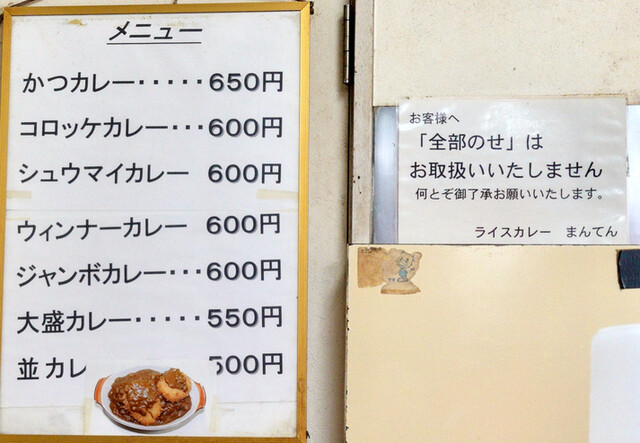 メニュー
かつカレー・・・・・650円
コロッケカレー・・・600円
シュウマイカレー 600円
ウィンナーカレー 600円
ジャンボカレー・・・600円
大盛カレー・・・・・550円
並カレ 500円
お客様へ
「全部のせ」は
お取扱いいたしません
何とぞ御了承お願いいたします。
ライスカレー まんてん